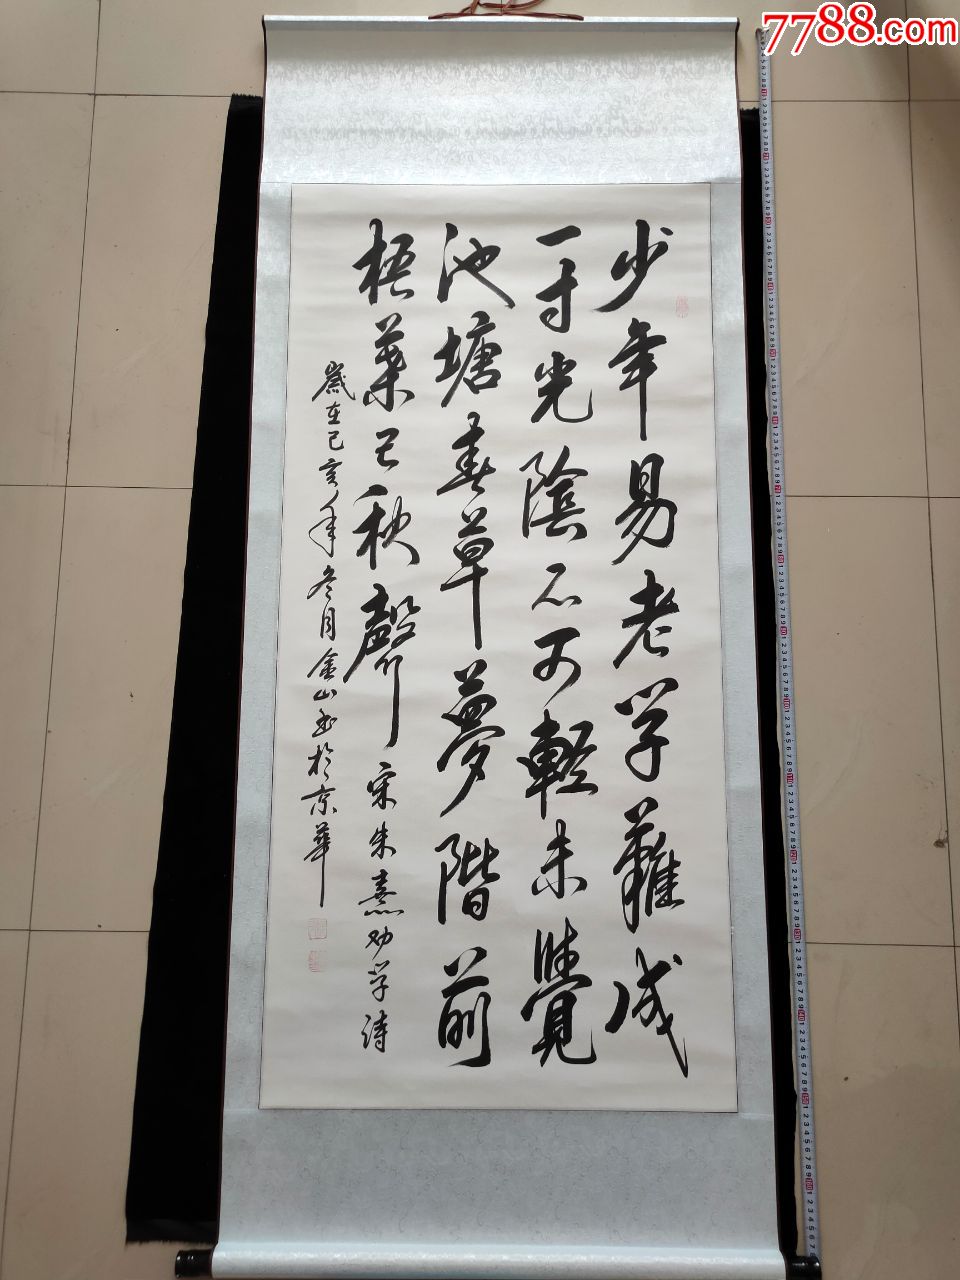 7788.com
少年易老学難成
一寸光陰不可輕未覺
池塘春草夢階前
梧葉已秋聲 宋朱熹劝学詩
歲在己亥年冬月金山书於京華